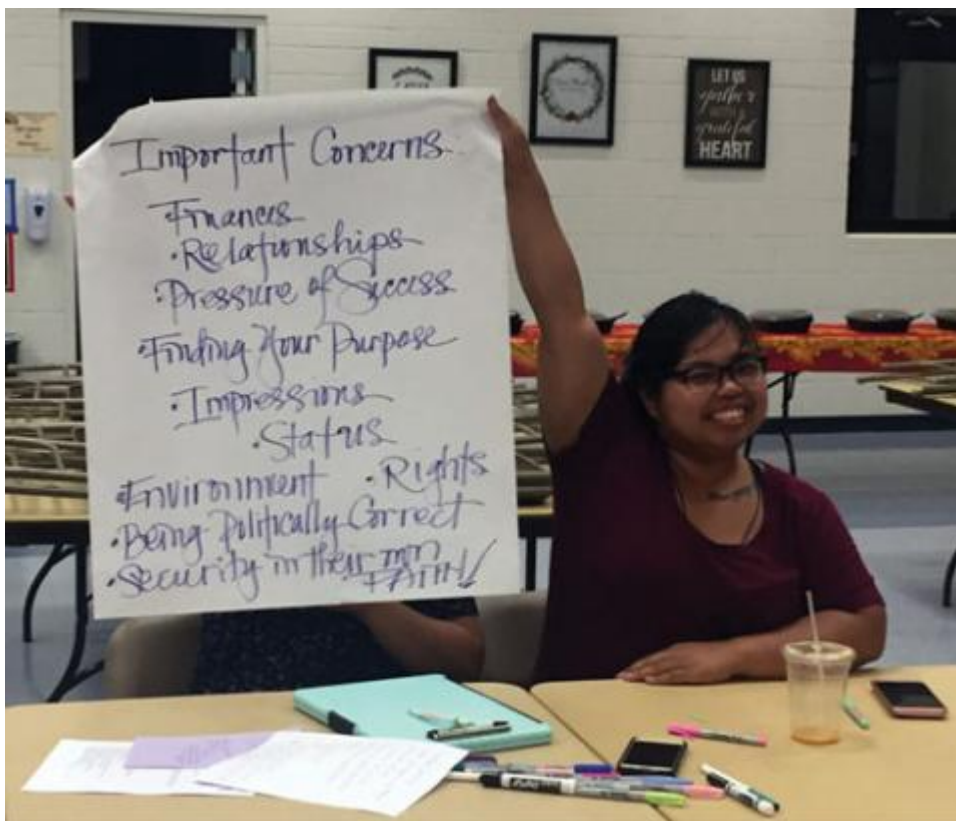 Important Concerns
Finances
• Relationships
• Pressure of Success
• Finding Your Purpose
• Impressions
• Status
• Environment • Rights
• Being Politically Correct
• Security in their own
FAITH!
LET US
gather
grateful
HEART